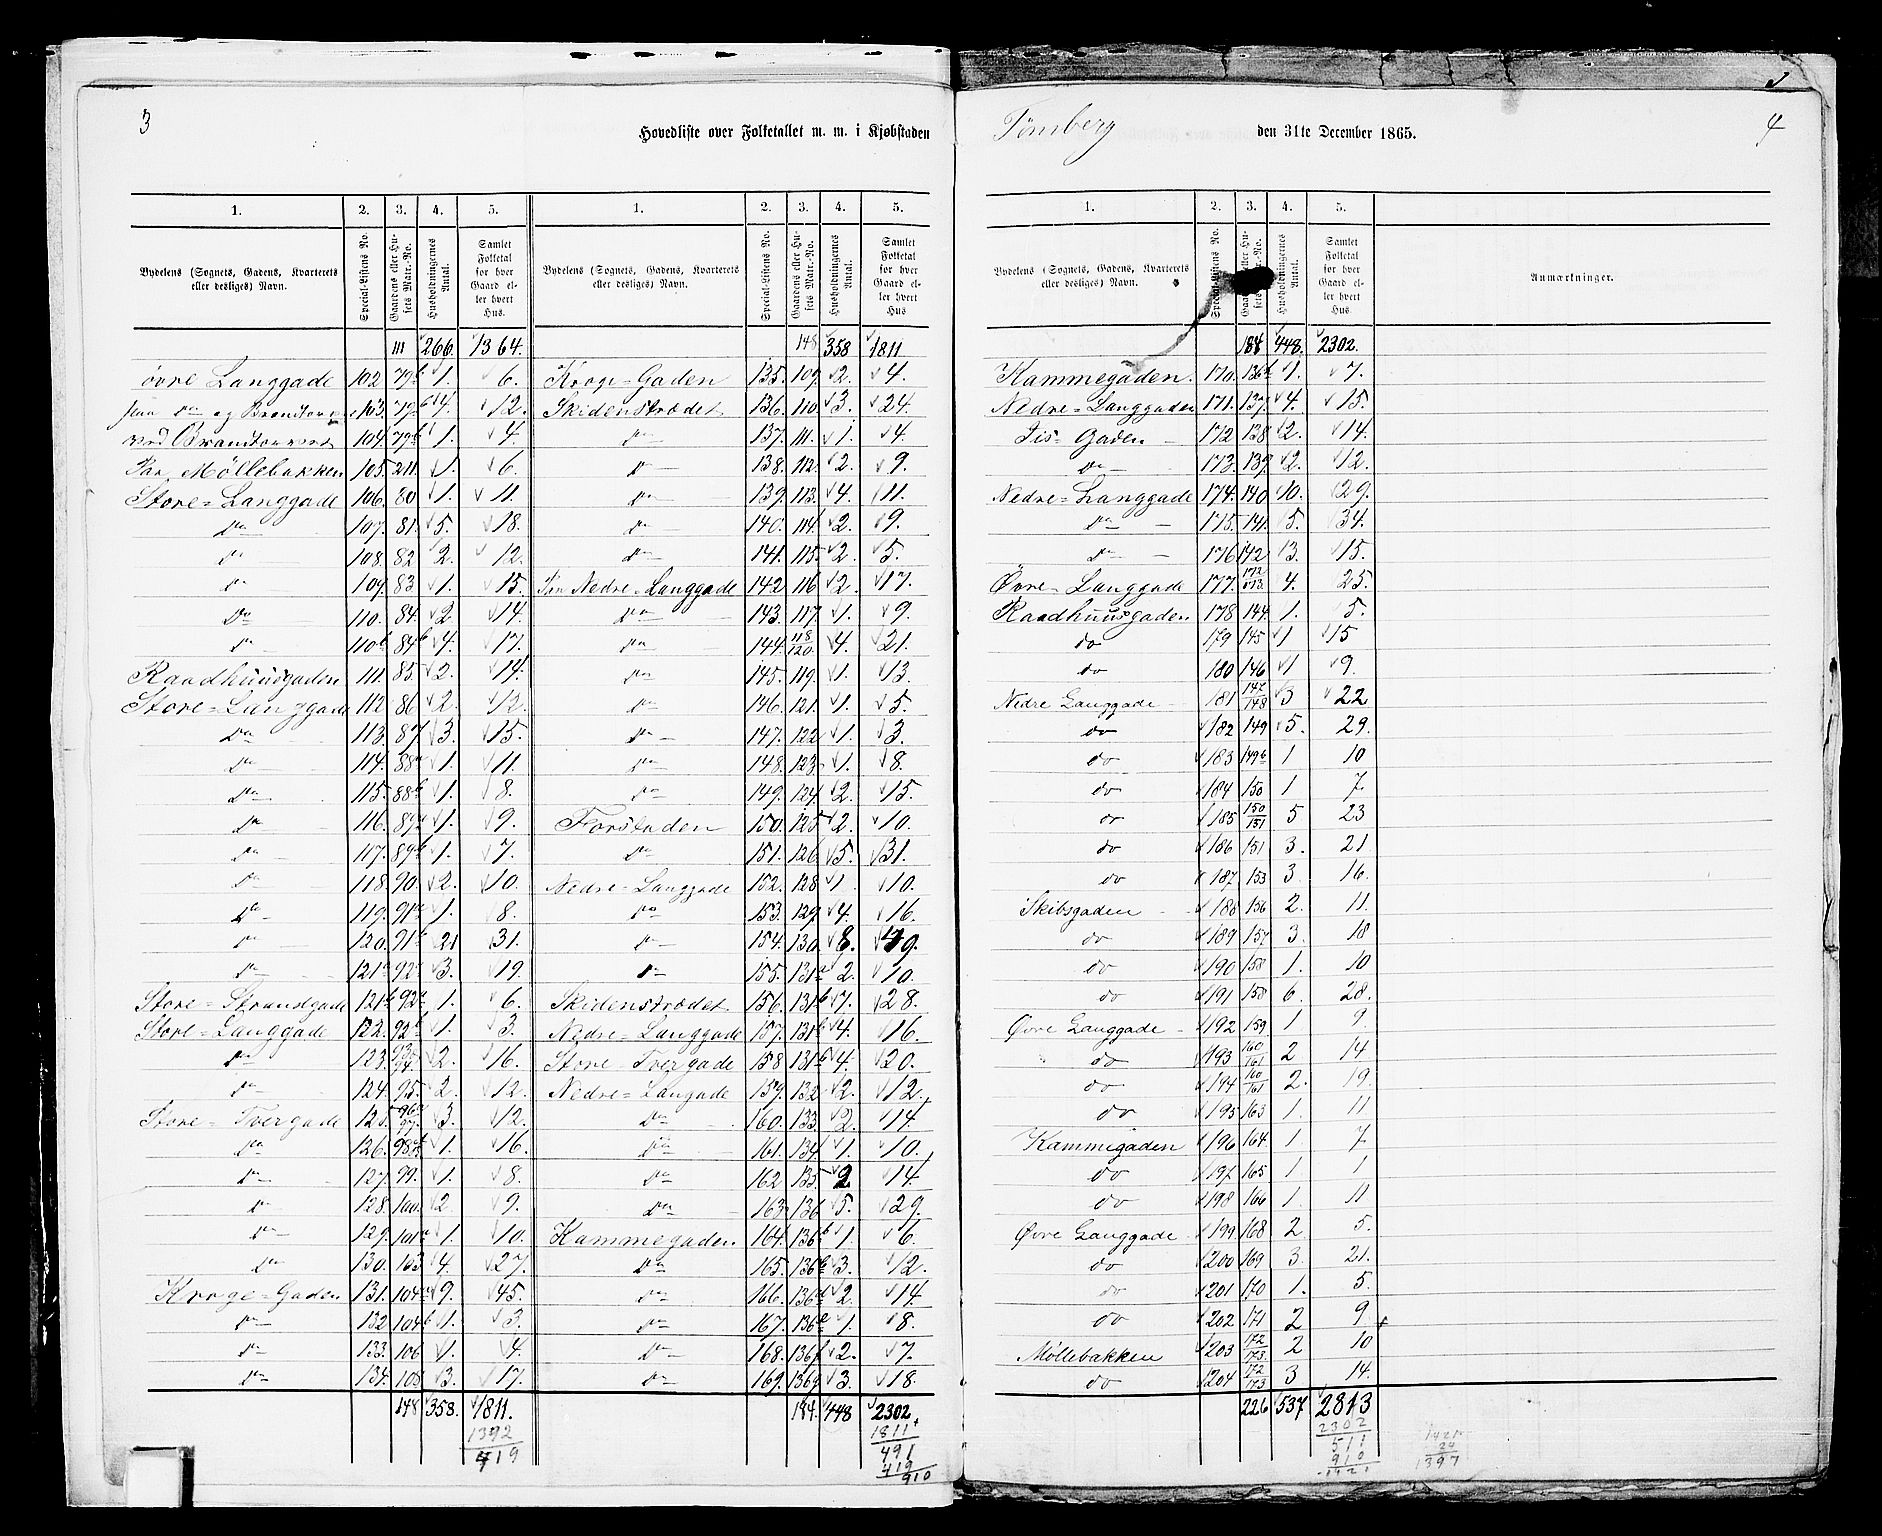 3
Hovedliste over Folketallet m. m. i Kjøbstaden
1. 2. 3. 4. 5. 1. 2. 3. 4. 5.
Bydelens (Sognets, Gadens, Kvarterets eller desliges) Navn. Special-Listens No. Gaardens eller Husets Matr.-No. Husholdningernes Antal. Samlet Folketal for hver Gaard eller hvert Hus. Bydelens (Sognets, Gadens, Kvarterets eller desliges) Navn. Special-Listens No. Gaardens eller Husets Matr.-No. Husholdningernes Antal. Samlet Folketal for hver Gaard eller hvert Hus
111 266. 1364. 148 358 1811
Øvre Langgade 102 79b 1. 6. Kroge=Gaden 135. 109. 2. 4.
Do og Brandtorv 103. 79 4. 12. Skidenstrædet 136. 110. 3. 24.
ved Brandtorvet 104. 79 1. 4. Do 137. 111. 1. 4.
Møllebakken 105. 211. 1. 6. Do 138. 112. 2. 9.
Store=Langgade 106. 80 1. 11. Do 139. 113. 4. 11.
Do 107. 81. 5. 18. Do 140. 114. 2. 9.
Do 108. 82 2. 12. Do 141. 115. 2. 5.
Do 109. 83 1. 15. Nedre=Langgade 142 116 2. 17.
Do 110. 84a 2 14. Do 143. 117. 1. 9.
Do 110b 84b 4. 17. Do 144. 118/120. 4. 21.
Raadhuusgaden 111. 85. 2. 14. Do 145. 119. 1. 13.
Store=Langgade 112 86 2. 12. Do 146. 121. 1. 5.
Do 113. 87 3. 15. Do 147. 122 1. 3.
Do 114. 88a 1. 11. Do 148. 123. 1. 8.
Do 115. 88b 1. 8. Do 149. 124. 2. 15.
Do 116. 89a 1. 9. Forstaden 150. 125 2. 10.
Do 117. 89b 1. 7. Do 151. 126 5. 31.
Do 118. 90. 2. 10. Nedre=Langgade 152. 128 1 10.
Do 119. 91a 1. 8. Do 153. 129. 4. 16.
Do 120. 91b 21 31. Do 154. 130. 8. 49.
Do 121a 92a 3. 19. Do 155. 131a 2. 10.
Store=Strandgade 121b 92a 1. 6. Skidenstrædet 156. 131b 7. 28.
Store=Langgade 122. 92b 1. 3. Nedre=Langgade 157. 131b 4. 16.
Do 123. 93/94. 2. 16. Store=Tvergade 158 131b 4. 20.
Do 124. 95. 2. 12. Nedre=Langade 159. 132 2. 12.
Store=Tvergade 125. 96/97. 3. 12. Do 160. 133. 2. 14.
Do 126. 98 1. 16. Do 161. 134. 1. 10.
Do 127. 99. 1. 8. Do 162 135. 2 14.
Do 128. 100. 2. 9. Do 163. 136 5. 29.
Do 129. 101a 1. 10. Kammegaden. 164. 136b 1. 6.
Do 130. 103. 4. 27. Do 165. 136c 3. 12.
Kroge=Gaden 131. 104a 9. 45. Do 166. 136d 2. 14.
Do 132 104b 1. 3. Do 167. 136e 1. 8.
Do 133. 106 1. 4. Do 168. 136f 2. 7.
Do 134. 108 3. 17. Do 169. 136g 3. 18.
148 358. 1811. 184. 448 2302.
1392 1811
419 491
419
910
Tønsberg den 31te December 1865. 4
1. 2. 3. 4. 5.
Bydelens (Sognets, Gadens, Kvarterets eller desliges) Navn. Special-Listens No. Husholdningernes Antal. Samlet Folketal for hver Gaard eller hvert Hus. Anmærkninger.
184 448. 2302.
Kammegaden. 170. 136h 1. 7.
Nedre=Langgaden 171. 137. 4. 15.
Fis=Gaden 172 138 2. 14.
Do 173. 139. 2. 12.
Nedre=Langgade 174. 140 10. 29.
Do 175. 141. 5. 34.
Do 176 142 13. 15.
Øvre=Langgade 177. 172/173. 4. 25.
Raadhuusgaden 178 144. 1. 5.
do 179 145 1 15
do 180 146 1 9.
Nedre Langgade 181 147/148 3 22
do 182 149 5. 29.
do 183 149b 1 10
do 184 150 1 7.
do 185 150/151 5 23
do 186 151 3. 21
do 187 153 3 16.
Skibsgaden 188 156 2. 11.
do 189 157 3. 18
do 190 158 1. 10
do 191 158 6. 28.
Øvre Langgade 192 159 1 9.
do 193 160/161 2 14
do 194 160/161 2. 19.
do 195 163 1. 11
Kammegaden 196 164 1. 7
do 197 165 1 1
do 198 166 1. 11
Øvre Langgade 199 168 2. 5.
do 200 169 3. 21.
do 201 170 1. 5.
do 202 171 2 9
Møllebakken 203 172/173. 2 10
do 204 172/173 3 14.
226 537 2813
2302
511
910
1421
1421
24
1397